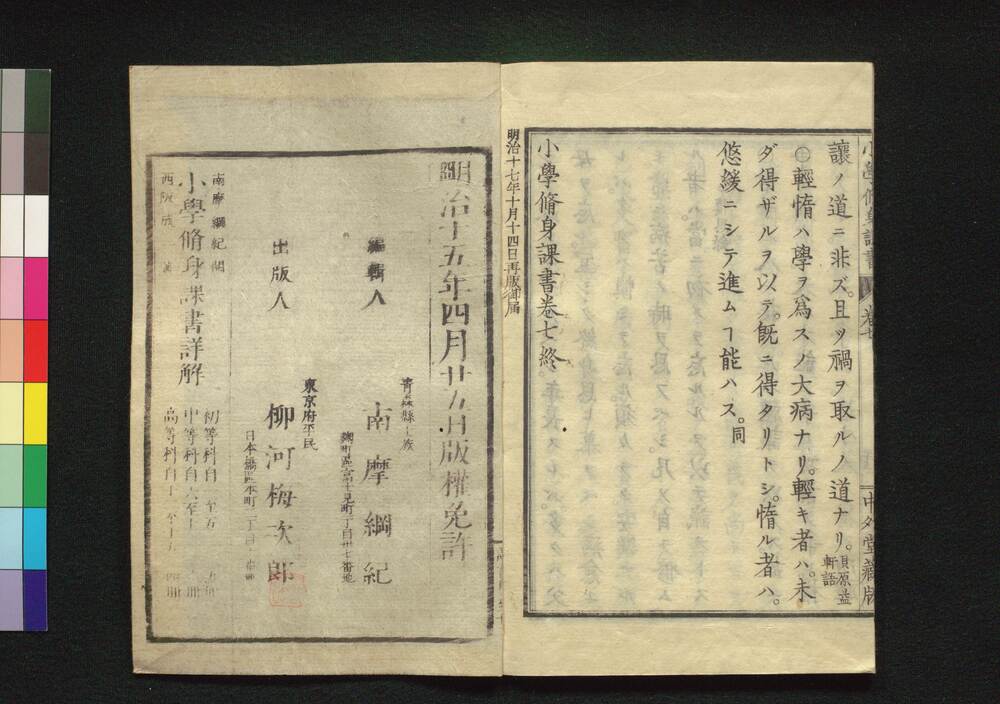 小學脩身課書 卷七
中外堂藏版
讓ノ道ニ非ズ。且ツ禍ヲ取ルノ道ナリ。貝原益軒語
○輕惰ハ學ヲ爲スノ大病ナリ。輕キ者ハ。未
ダ得ザルヲ以テ。既ニ得タリトシ。惰ル者ハ。
悠緩ニシテ進ムヿ能ハス。同
小學脩身課書卷七終
明治十七年十月十四日再版御届
明治十五年四月廿五日版權免許
青森縣士族
編輯人 南摩綱紀
麹町區富士見町
東京府平民
出版人 柳河梅次郎
日本橋區本町
南摩綱紀閲
小學脩身課書詳解
西阪成一
初等科自一至五
中等科自六至十
高等科自十一至十五